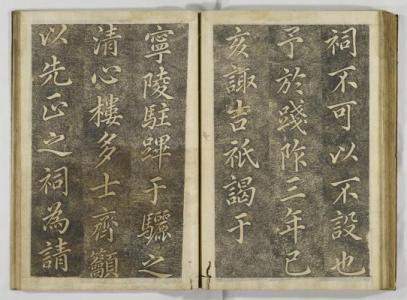 祠不可以不設也
予於踐阼三年己
亥諏吉祗謁于
寧陵駐蹕于驪之
清心樓多士齊籲
以先正之祠為請